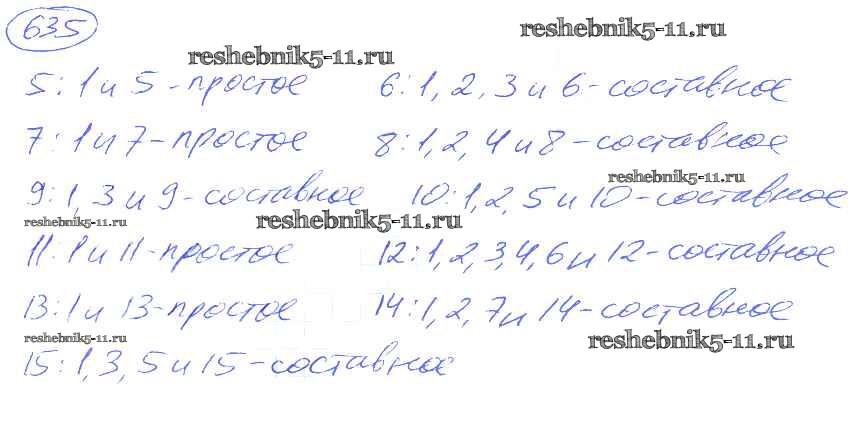 635
reshebnik5-11.ru
reshebnik5-11.ru
5:1 и 5-простое 6:1, 2, 3 и 6-составное
7:1 и 7-простое 8:1, 2, 4 и 8-составное
reshebnik5-11.ru
9:1, 3 и 9-составное 10:1, 2, 5 и 10-составное
reshebnik5-11.ru reshebnik5-11.ru
11:1 и 11-простое 12:1, 2, 3, 4, 6 и 12-составное
13:1 и 13-простое 14:1, 2, 7 и 14-составное
reshebnik5-11.ru reshebnik5-11.ru
15:1, 3, 5 и 15-составное